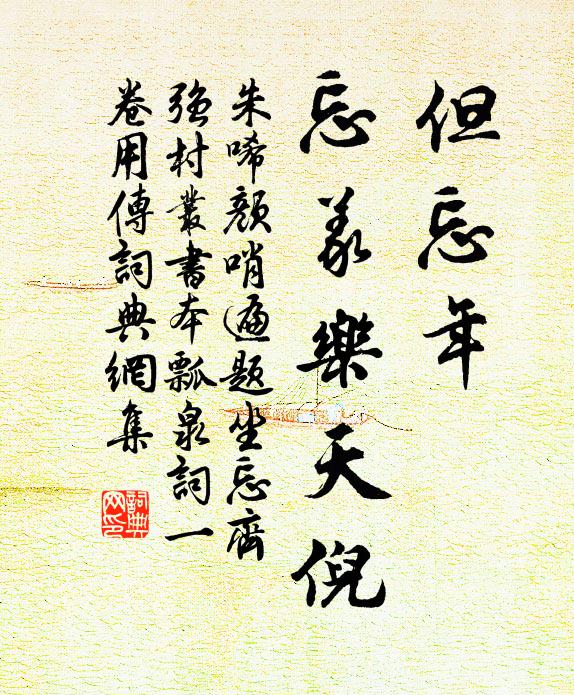 但忘年
忘義樂天倪
朱晞顏哨遍題坐忘齋
強村叢書本瓢泉詞一
卷用傳詞典網集
詞典網印